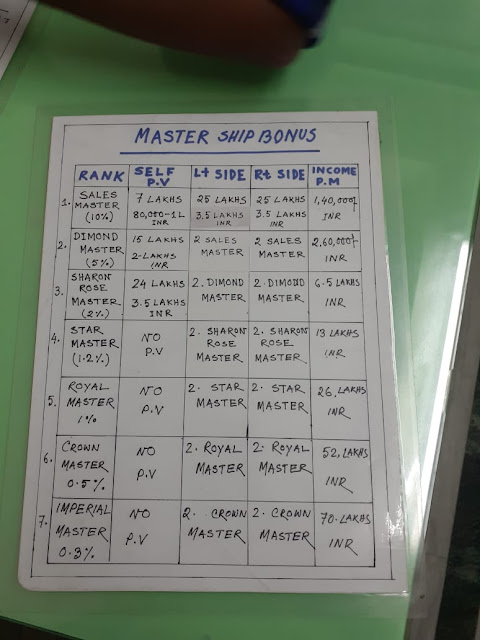 MASTER SHIP BONUS
RANK SELF P.V Lt SIDE Rt SIDE INCOME P.M
1. SALES MASTER (10%) 7 LAKHS 80,000-1L INR 25 LAKHS 3.5 LAKHS INR 25 LAKHS 3.5 LAKHS INR 1,40,000/ INR
2. DIMOND MASTER (5%) 15 LAKHS 2-LAKHS INR 2 SALES MASTER 2 SALES MASTER 2,60,000/ INR
3. SHARON ROSE MASTER (2%) 24 LAKHS 3.5 LAKHS INR 2. DIMOND MASTER 2. DIMOND MASTER 6.5 LAKHS INR
4. STAR MASTER (1.2%) NO P.V 2. SHARON ROSE MASTER 2. SHARON ROSE MASTER 13 LAKHS INR
5. ROYAL MASTER 1% NO P.V 2. STAR MASTER 2. STAR MASTER 26, LAKHS INR
6. CROWN MASTER 0.5% NO P.V 2. ROYAL MASTER 2. ROYAL MASTER 52, LAKHS INR
7. IMPERIAL MASTER 0.3% NO P.V 2. CROWN MASTER 2. CROWN MASTER 70. LAKHS INR